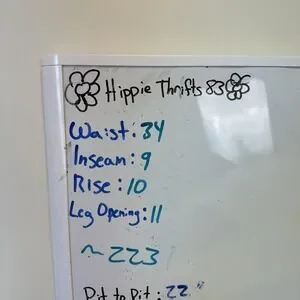 Hippie Thrifts 83
Waist: 34
Inseam: 9
Rise: 10
Leg Opening: 11
~ 223
Pit to Pit: 22"